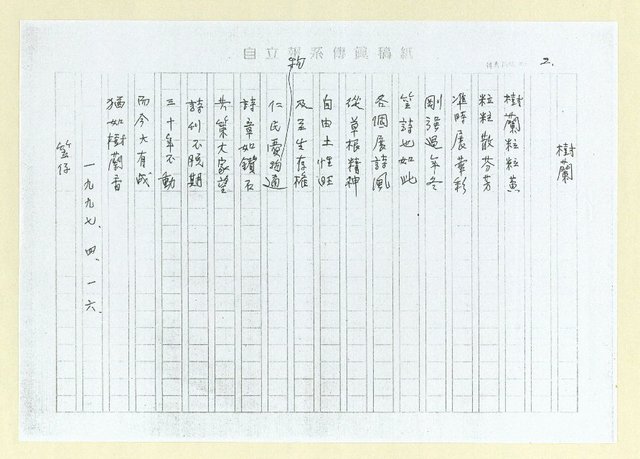 自立報系傳真稿紙
2.
樹蘭
樹蘭粒粒黃
粒粒散芬芳
準時展華彩
剛強過年冬
笠詩也如此
各個展詩風
從草根精神
自由土性旺
及至生存權
仁民愛物通
物
詩章如鑽石
共築大家望
詩刊不脫期
三十年不動
而今大有成
猶如樹蘭香
一九九七、四、一六、
笠仔